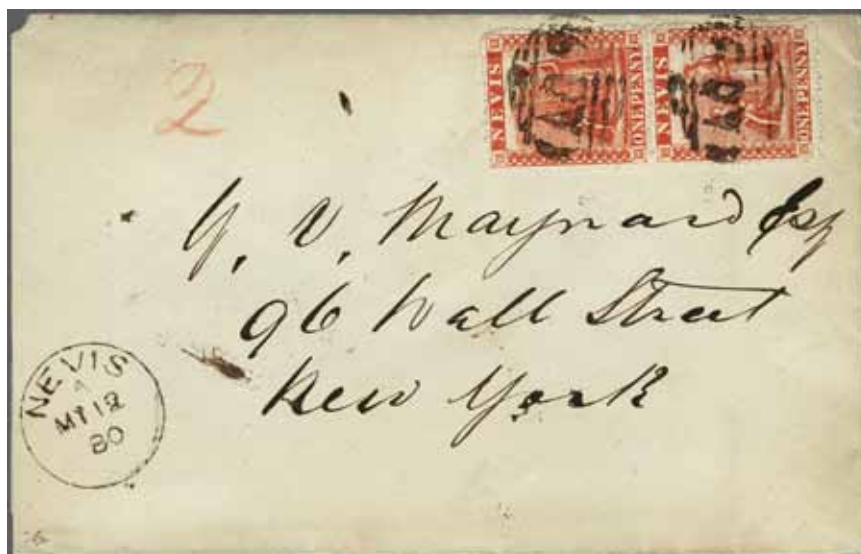 2
NEVIS
ONE PENNY
NEVIS
ONE PENNY
A09
A09
G. V. Maynard Esq
96 Wall Street
New York
NEVIS
A
MY 12
80